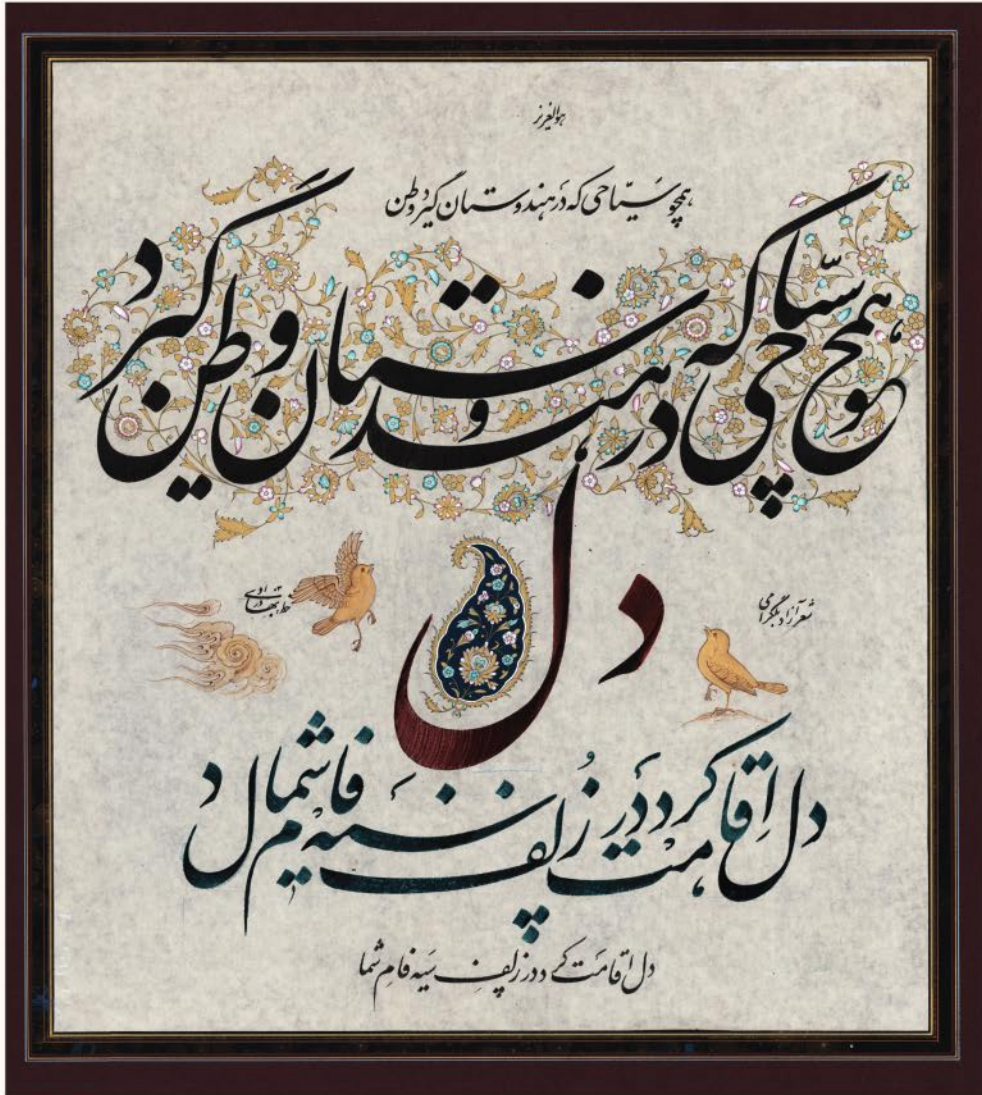 هوالعزیز
همچو سیّاحی که در هندوستان گیرد وطن
همچو سیّاحی که در هندوستان وطن گیرد
دل
شعر آزاد بلگرامی
خط بهادری
دل اقامت کرد در زلف سیه فام شما دل
دل اقامت کرد در زلفِ سَیه فامِ شما